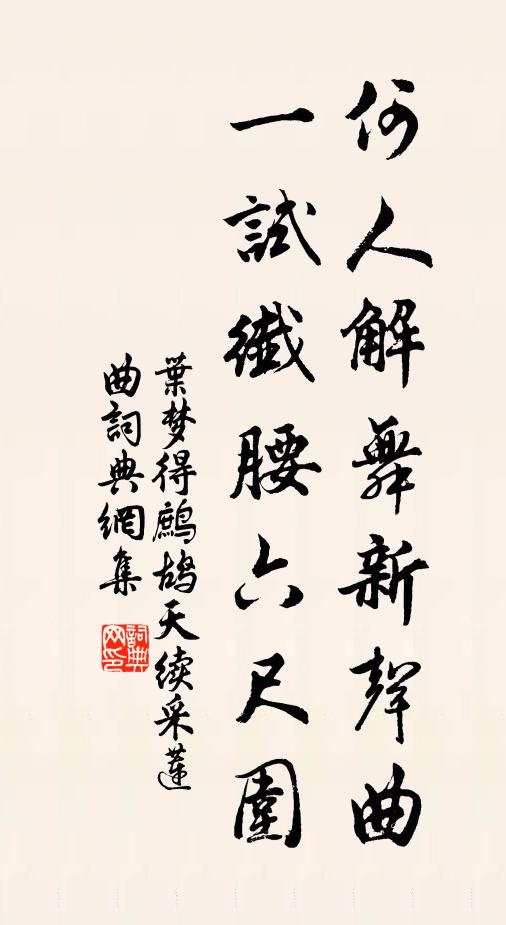 何人解舞新聲曲
一試纖腰六尺圍
葉梦得鷓鴣天续采蓮
曲詞典網集
詞典
网印